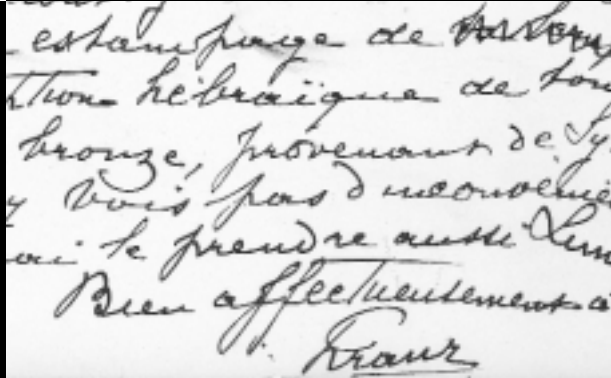 estampage de
hébraïque de son
bronze, provenant de Sy
y vois pas d'inconvénie
ai le prendre aussi Lun
Bien affectueusement à
Franz